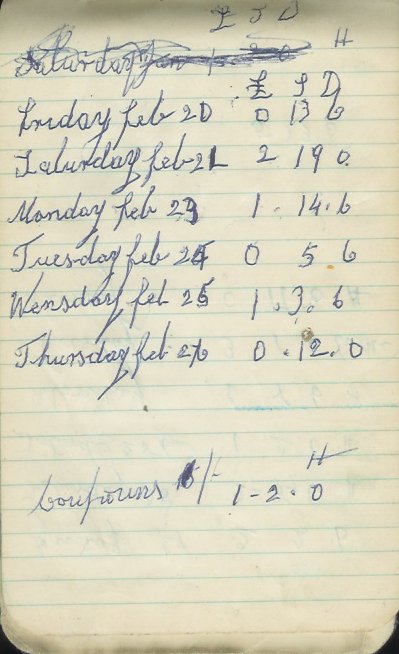 £ S D
Saturday Jan 1 2 0 H
£ S D
Friday Feb 20 0 13 6
Saturday feb 21 2 19 0
Monday feb 23 1 . 14 . 6
Tuesday feb 24 0 5 6
Wensday feb 25 1 . 3 . 6
Thursday feb 26 0 . 12 . 0
H
/- 1 - 2 . 0